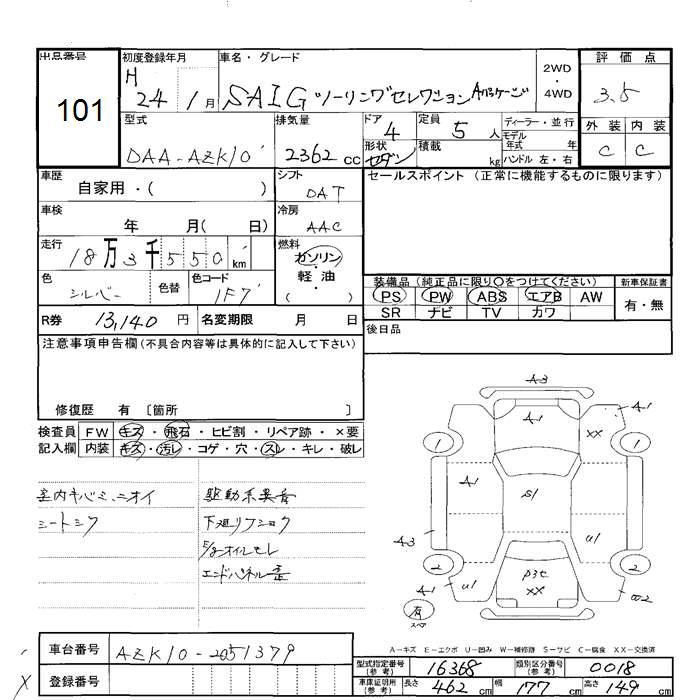 出品番号 初度登録年月 車名・グレード 2WD ・ 4WD 評価点
101 H 24 1月 SAIG ツーリングセレクション Aパッケージ 3.5
型式 排気量 ドア 4 定員 5 人 ディーラー・並行 外装 内装
DAA-AZK10 2362 cc 形状 セダン 積載 kg モデル年式 年 ハンドル 左・右 C C
車歴 自家用・( ) シフト DAT セールスポイント (正常に機能するものに限ります)
車検 年 月( 日) 冷房 AAC
走行 18万3千550km 燃料 ガソリン 軽・油 ( )
色 シルバー 色替 色コード 1F7
装備品 (純正品に限り○をつけてください) 新車保証書
PS PW ABS エアB AW 有・無
SR ナビ TV カワ
R券 13,140 円 名変期限 月 日 後日品
注意事項申告欄 (不具合内容等は具体的に記入して下さい)
修復歴 有 〔箇所 〕
検査員 FW キズ・飛石・ヒビ割・リペア跡・×要
記入欄 内装 キズ・汚レ・コゲ・穴・スレ・キレ・破レ
室内キバミ、ニオイ 駆動系異音
シートシワ 下廻リフショク
E/gオイルモレ
エンドパネル歪
A3
A1 A1
XX
1 1
A1 S1
A3 U1
2 2
A1 U1 P3E XX W2
有 スペア
A-キズ E-エクボ U-凹み W-補修跡 S-サビ C-腐食 XX-交換済
車台番号 AZK10-2051379
登録番号
型式指定番号 (参考) 16368 類別区分番号 (参考) 0018
車庫証明用 (参考) 長さ 462 cm 幅 177 cm 高さ 149 cm